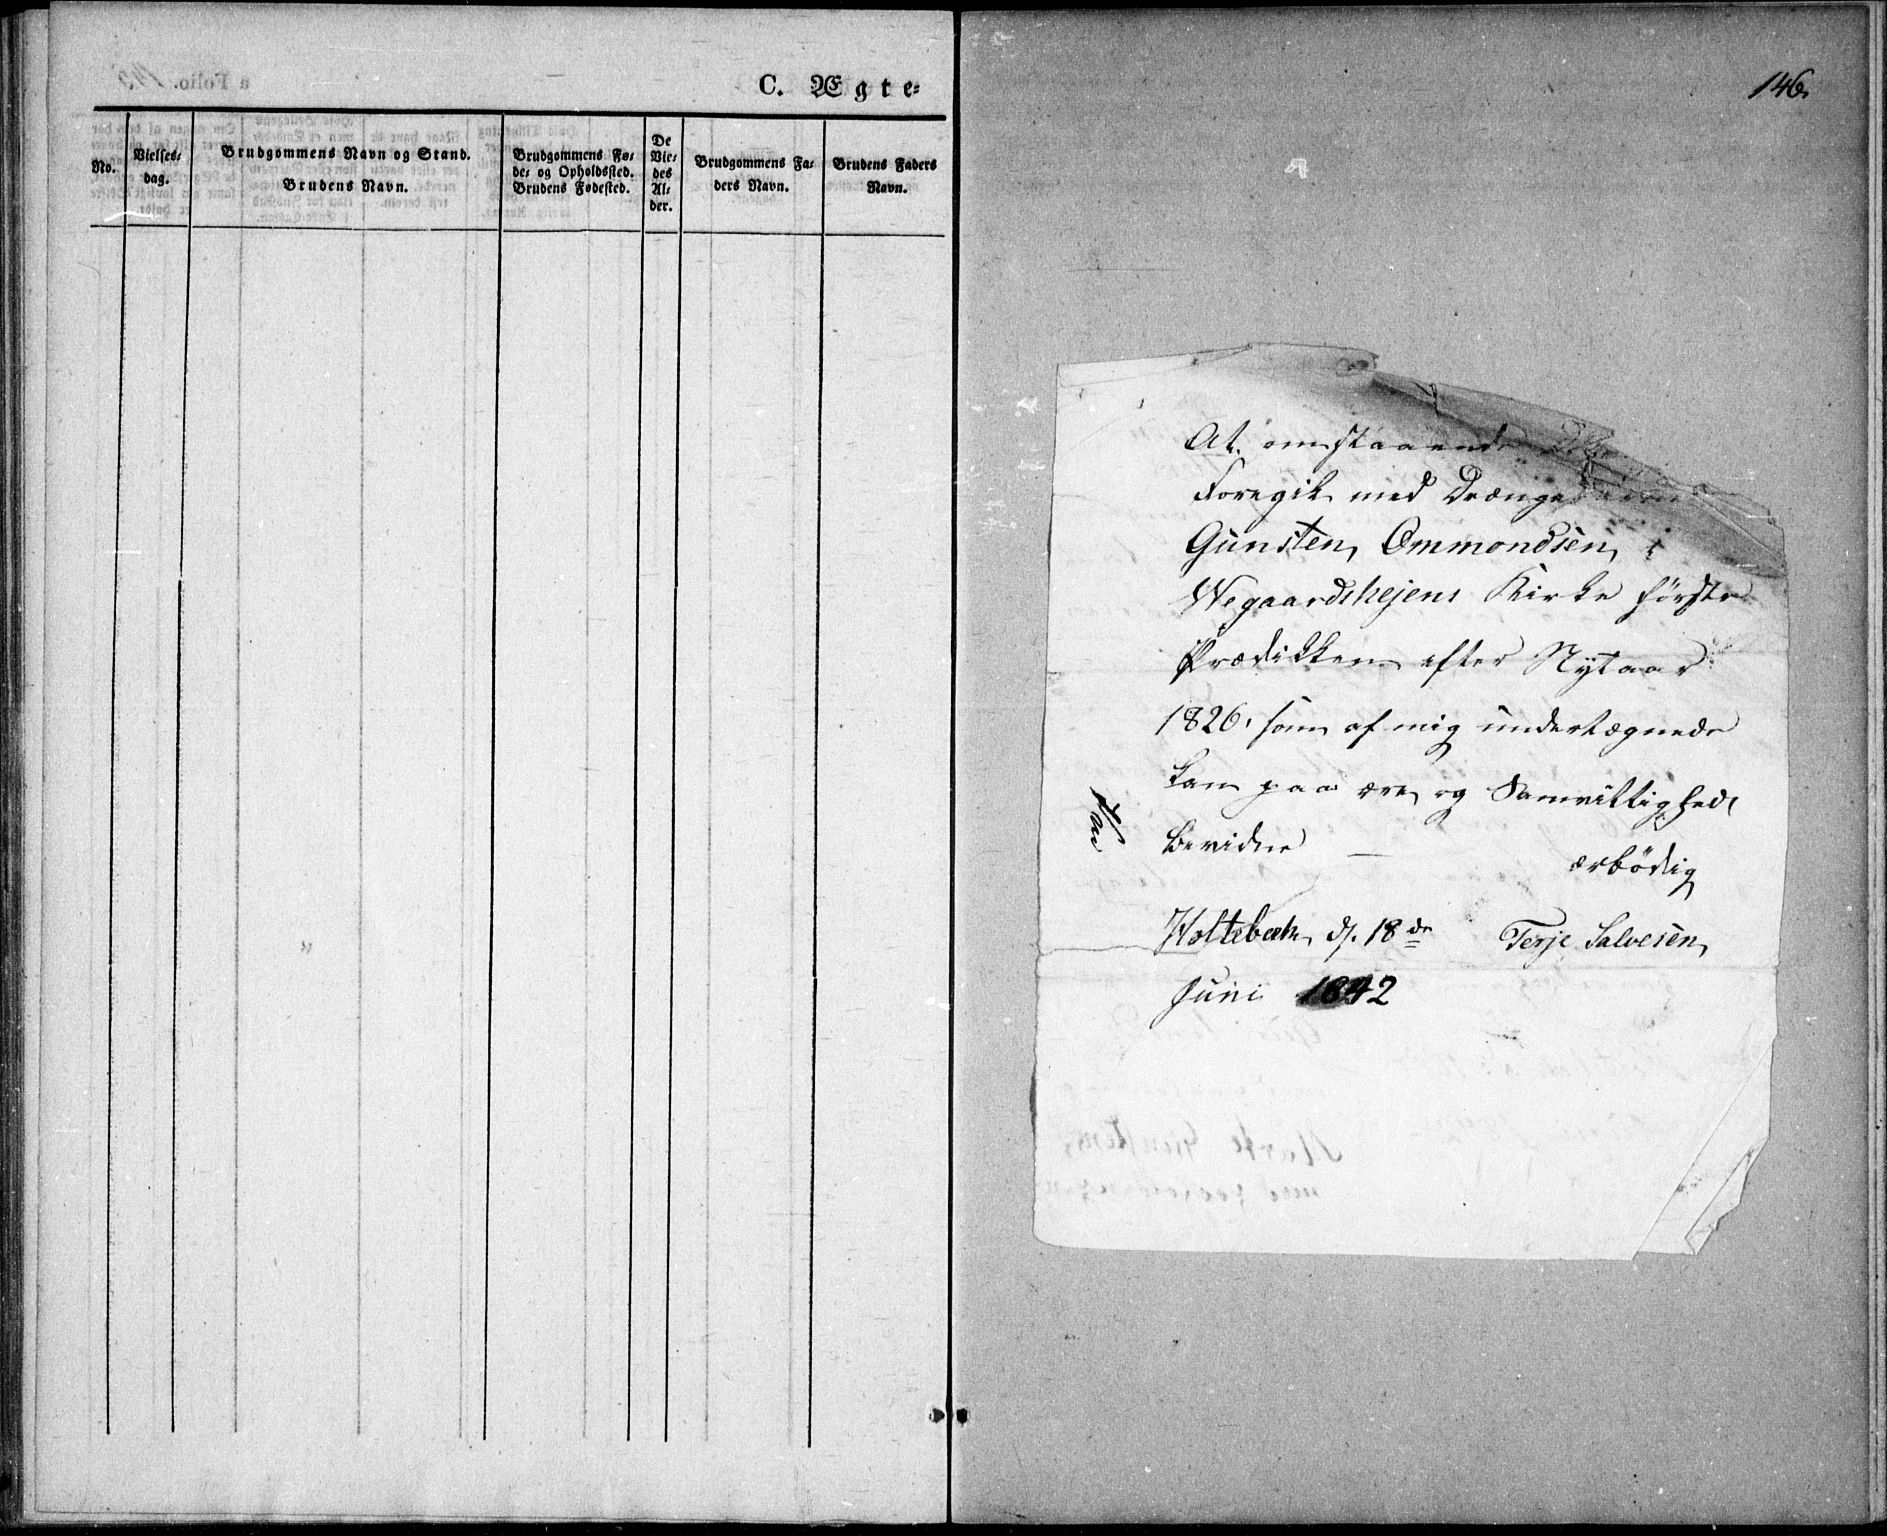 C. Ægte=
No.
Vielses=
dag.
Brudgommens Navn og Stand.
Brudens Navn.
Brudgommens Fø=
de= og Opholdssted.
Brudens Fødested.
De
Vie=
des
Al=
der.
Brudgommens Fa=
ders Navn.
Brudens Faders
Navn.
146.
At omstaaende
Foregik med
Gunsten Ommondsen i
Wegaardshejens Kirke første
Prædikken efter Nytaar
1826. som af mig undertægnede
kan paa ære og Samvittighed
Bevidne —
ærbødig
Holtebæk d. 18de Terje Salvesen
Juni 1842